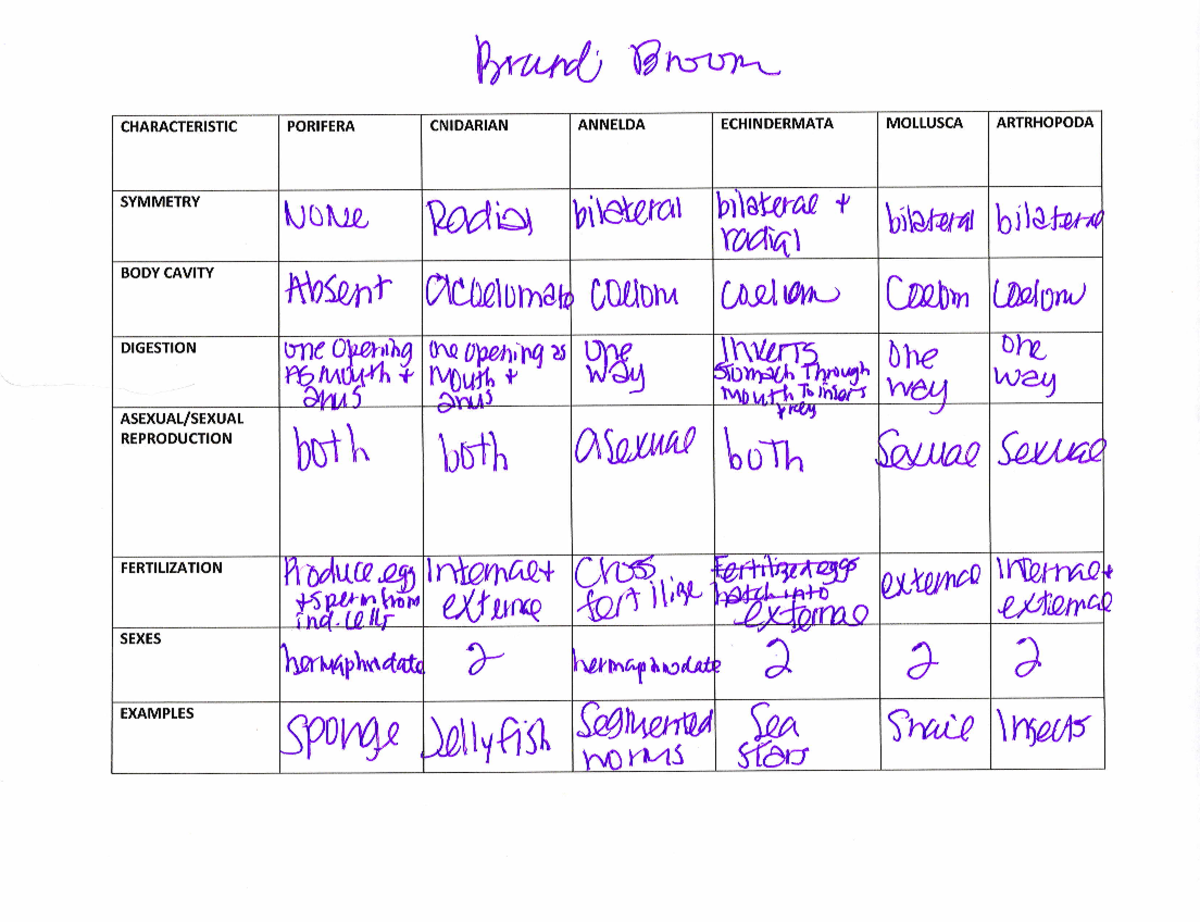 Brandi Broom
CHARACTERISTIC PORIFERA CNIDARIAN ANNELDA ECHINDERMATA MOLLUSCA ARTRHOPODA
SYMMETRY NONe Radial bilateral bilateral + radial bilateral bilateral
BODY CAVITY Absent acoelomate coelom coelom Coelom Coelom
DIGESTION one Opening As mouth + anus One opening as Mouth + anus One way Inverts Stomach Through Mouth To prey One way One way
ASEXUAL/SEXUAL
REPRODUCTION both both asexual both Sexual Sexual
FERTILIZATION Produce egg + sperm from ind. cells Internal + external Cross fertilize Fertilized eggs hatch into external external Internal + external
SEXES hermaphrodate 2 hermaphrodate 2 2 2
EXAMPLES Sponge Jellyfish Segmented worms Sea stars Snail Insects